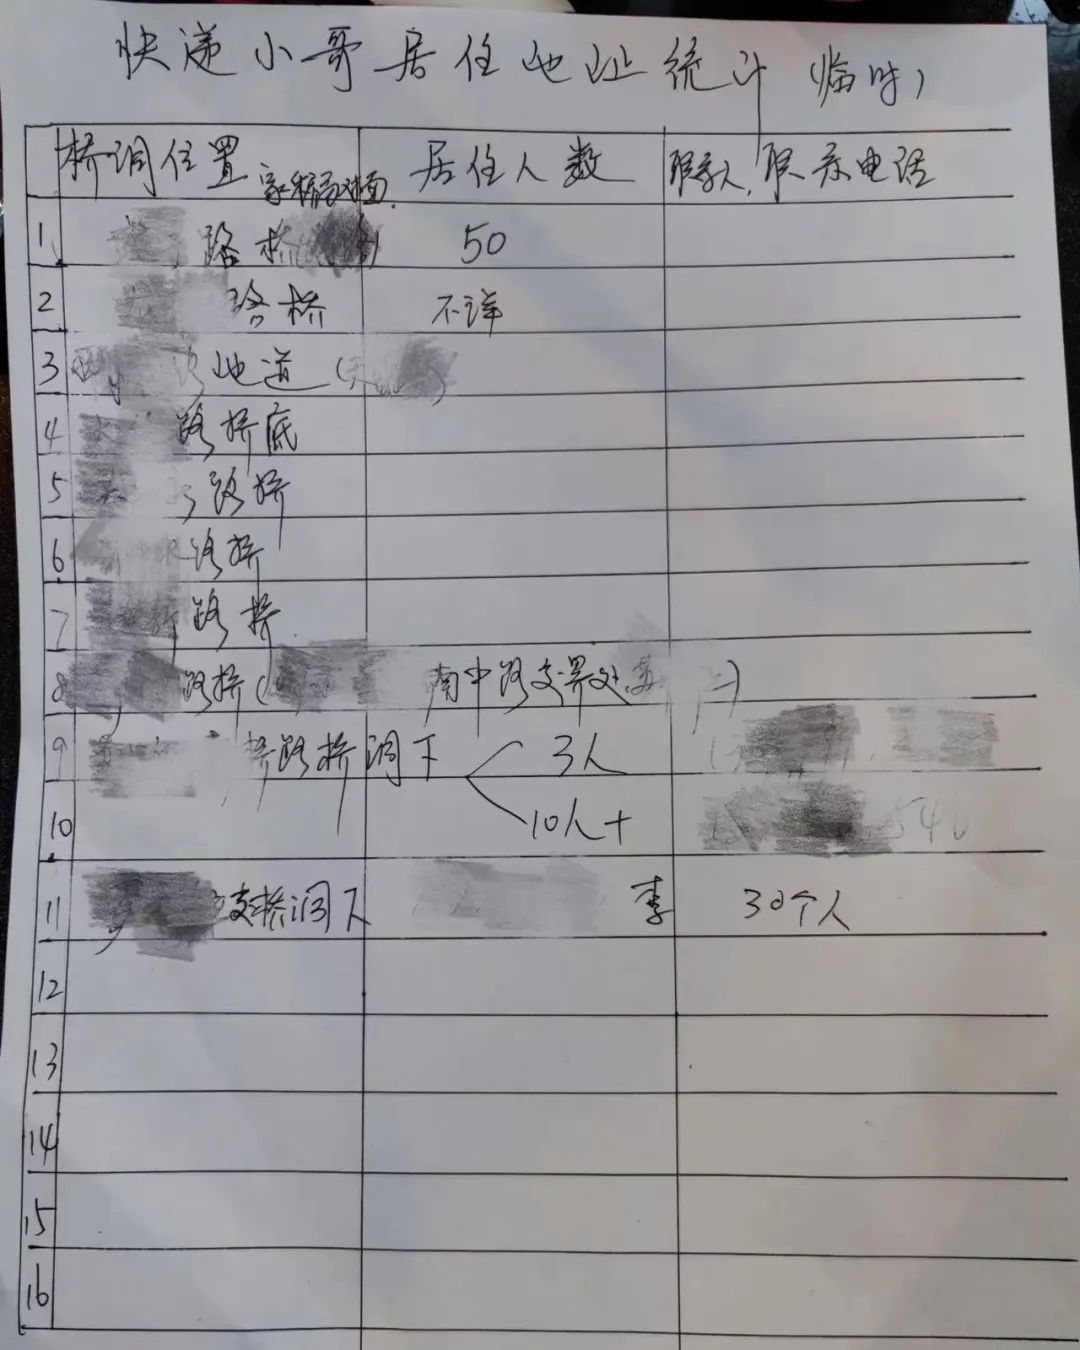 快递小哥居住地址统计(临时)
桥洞位置 居住人数 联系人,联系电话
对面.
1 路桥 50
2 路桥 不详
3 地道(
4 路桥底
5 路桥
6 路桥
7 路桥
8 路桥( 南中路交界处
9 桥路桥洞下 3人
10 10人+
11 支桥洞下 李 30个人
12
13
14
15
16